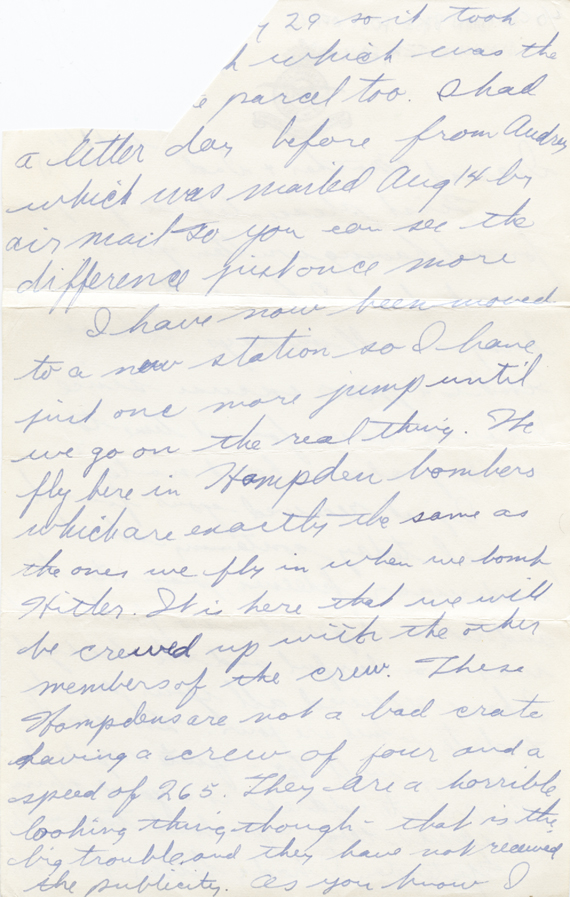 29 so it took
which was the
parcel too. I had
a letter day before from Audrey
which was mailed Aug 14 by
air mail so you can see the
difference just once more
I have now been moved
to a new station so I have
just one more jump until
we go on the real thing. We
fly here in Hampden bombers
which are exactly the same as
the ones we fly in when we bomb
Hitler. It is here that we will
be crewed up with the other
members of the crew. These
Hampdens are not a bad crate
having a crew of four and a
speed of 265. They are a horrible
looking thing though - that is the
big trouble and they have not received
the publicity. As you know I